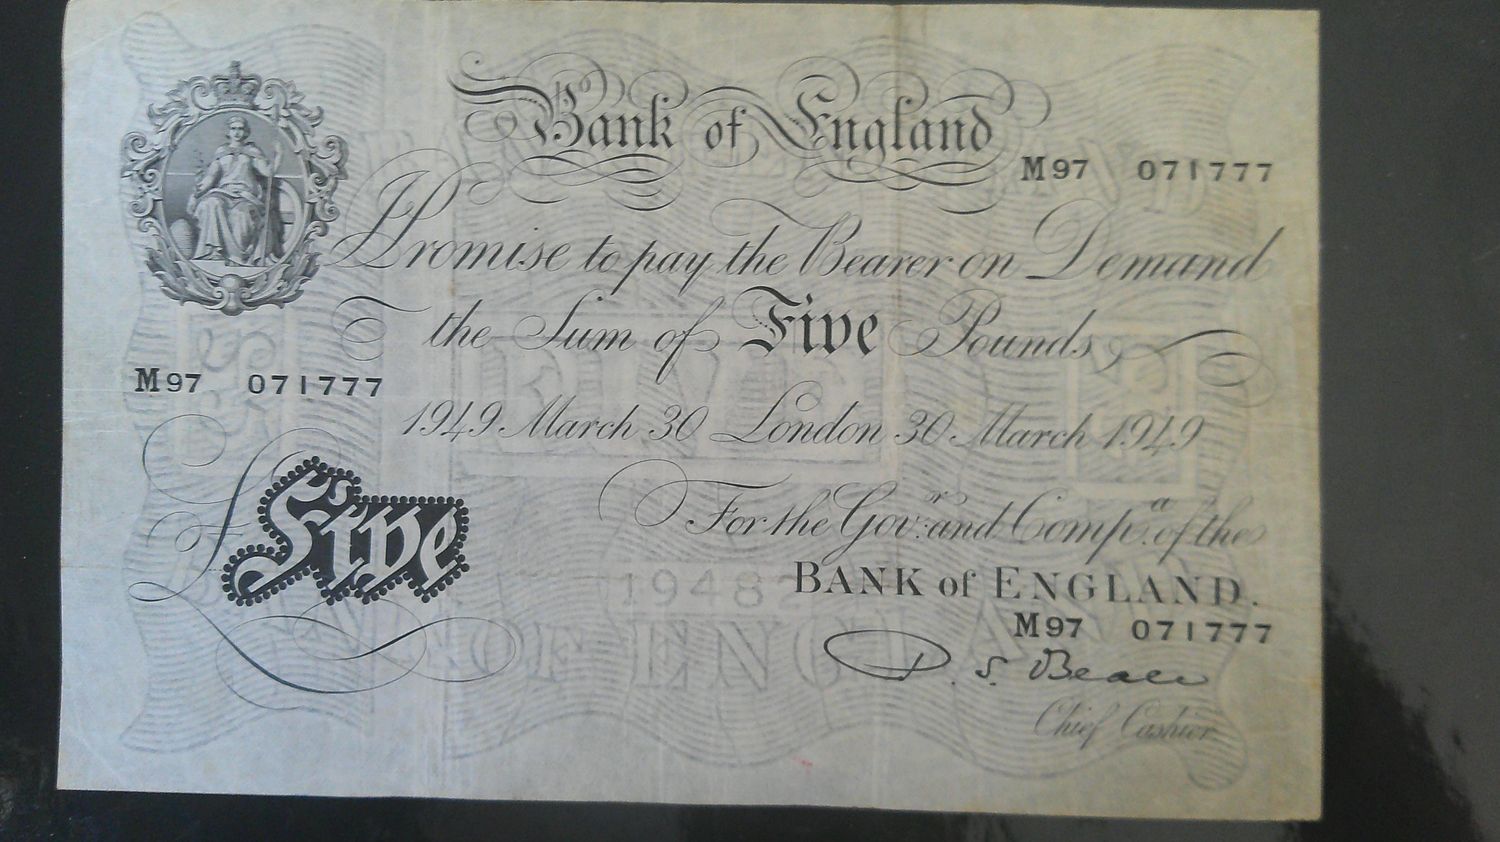 Bank of England
M97 071777
I Promise to pay the Bearer on Demand
the Sum of Five Pounds
M97 071777
1949 March 30 London 30 March 1949
For the Gov.r and Comp.a of the
£Five
1948
BANK of ENGLAND.
M97 071777
OF ENGLAND
P. S. Beale
Chief Cashier